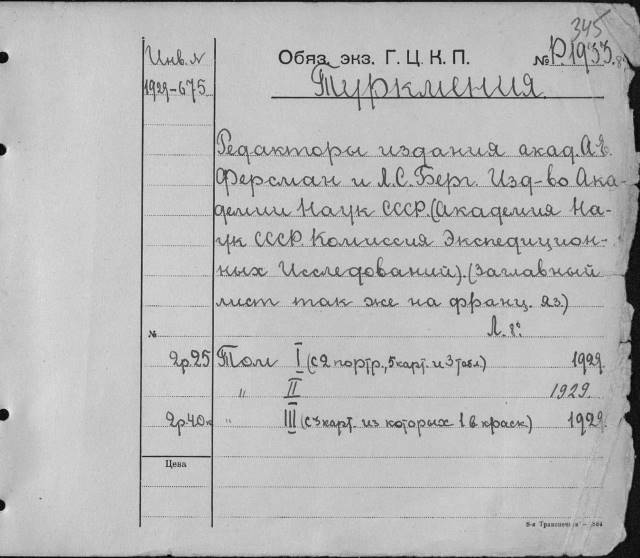 345
Инв. N
1929-675
Обяз. экз. Г. Ц. К. П.
№ Р.1933. 8°
Туркмения.
Редакторы издания акад. А.Е.
Ферсман и Л.С. Берг. Изд-во Ака-
демии Наук СССР. (Академия На-
ук СССР. Комиссия Экспедицион-
ных Исследований). (Заглавный
лист так же на франц. яз)
Л. 8°.
№
2р.25 Том I (с 2 портр., 5 карт. и 3 табл.) 1929.
" II 1929.
2р.40к " III (с 7 карт. из которых 1 в краск) 1929.
Цена